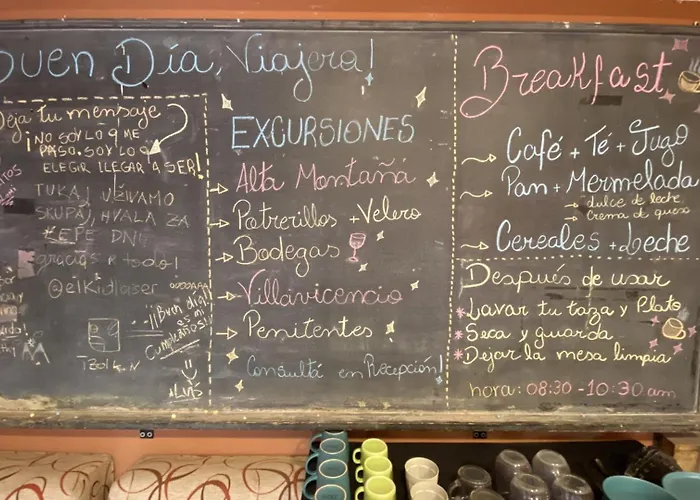 Buen Día, Viajera!
Deja tu mensaje
¡NO SOY LO Q ME
PASO. SOY LO Q
ELEGIR LLEGAR A SER!
TUKAJ UŽIVAMO
SKUPAJ, HVALA ZA
LEPE DNI
gracias x todo!
@elKidlaser
¡¡Buen día!!
es mi
Cumpleaños!!
Luis
EXCURSIONES
Alta Montaña
Potrerillos + Velero
Bodegas
Villavicencio
Penitentes
Consultá en Recepción!
Breakfast
Café + Té + Jugo
Pan + Mermelada
dulce de leche
crema de queso
Cereales + Leche
Después de usar
* Lavar tu taza y Plato
* Seca y guarda
* Dejar la mesa limpia
hora: 08:30 - 10:30 am